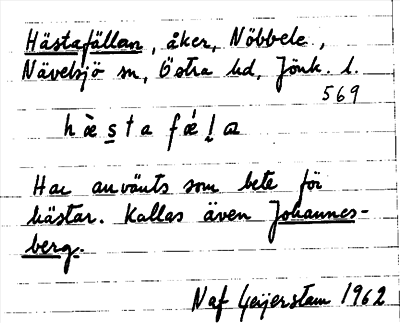 Hästafällan, åker, Nöbbele,
Nävelsjö sn, Östra hd, Jönk. l.
569
h æ̀ s t a f ǽ l a
Har använts som bete för
hästar. Kallas även Johannes-
berg.
Naf Geijerstam 1962